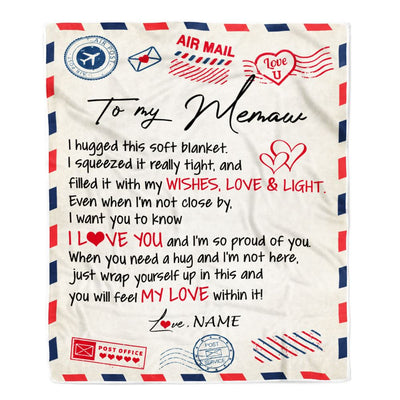 AIR POST
AIR MAIL
Love
U
To my Memaw
I hugged this soft blanket.
I squeezed it really tight, and
filled it with my WISHES, LOVE & LIGHT.
Even when I'm not close by,
I want you to know
I L❤VE YOU and I'm so proud of you.
When you need a hug and I'm not here,
just wrap yourself up in this and
you will feel MY LOVE within it!
Love, NAME
POST OFFICE
POST
SERVICE